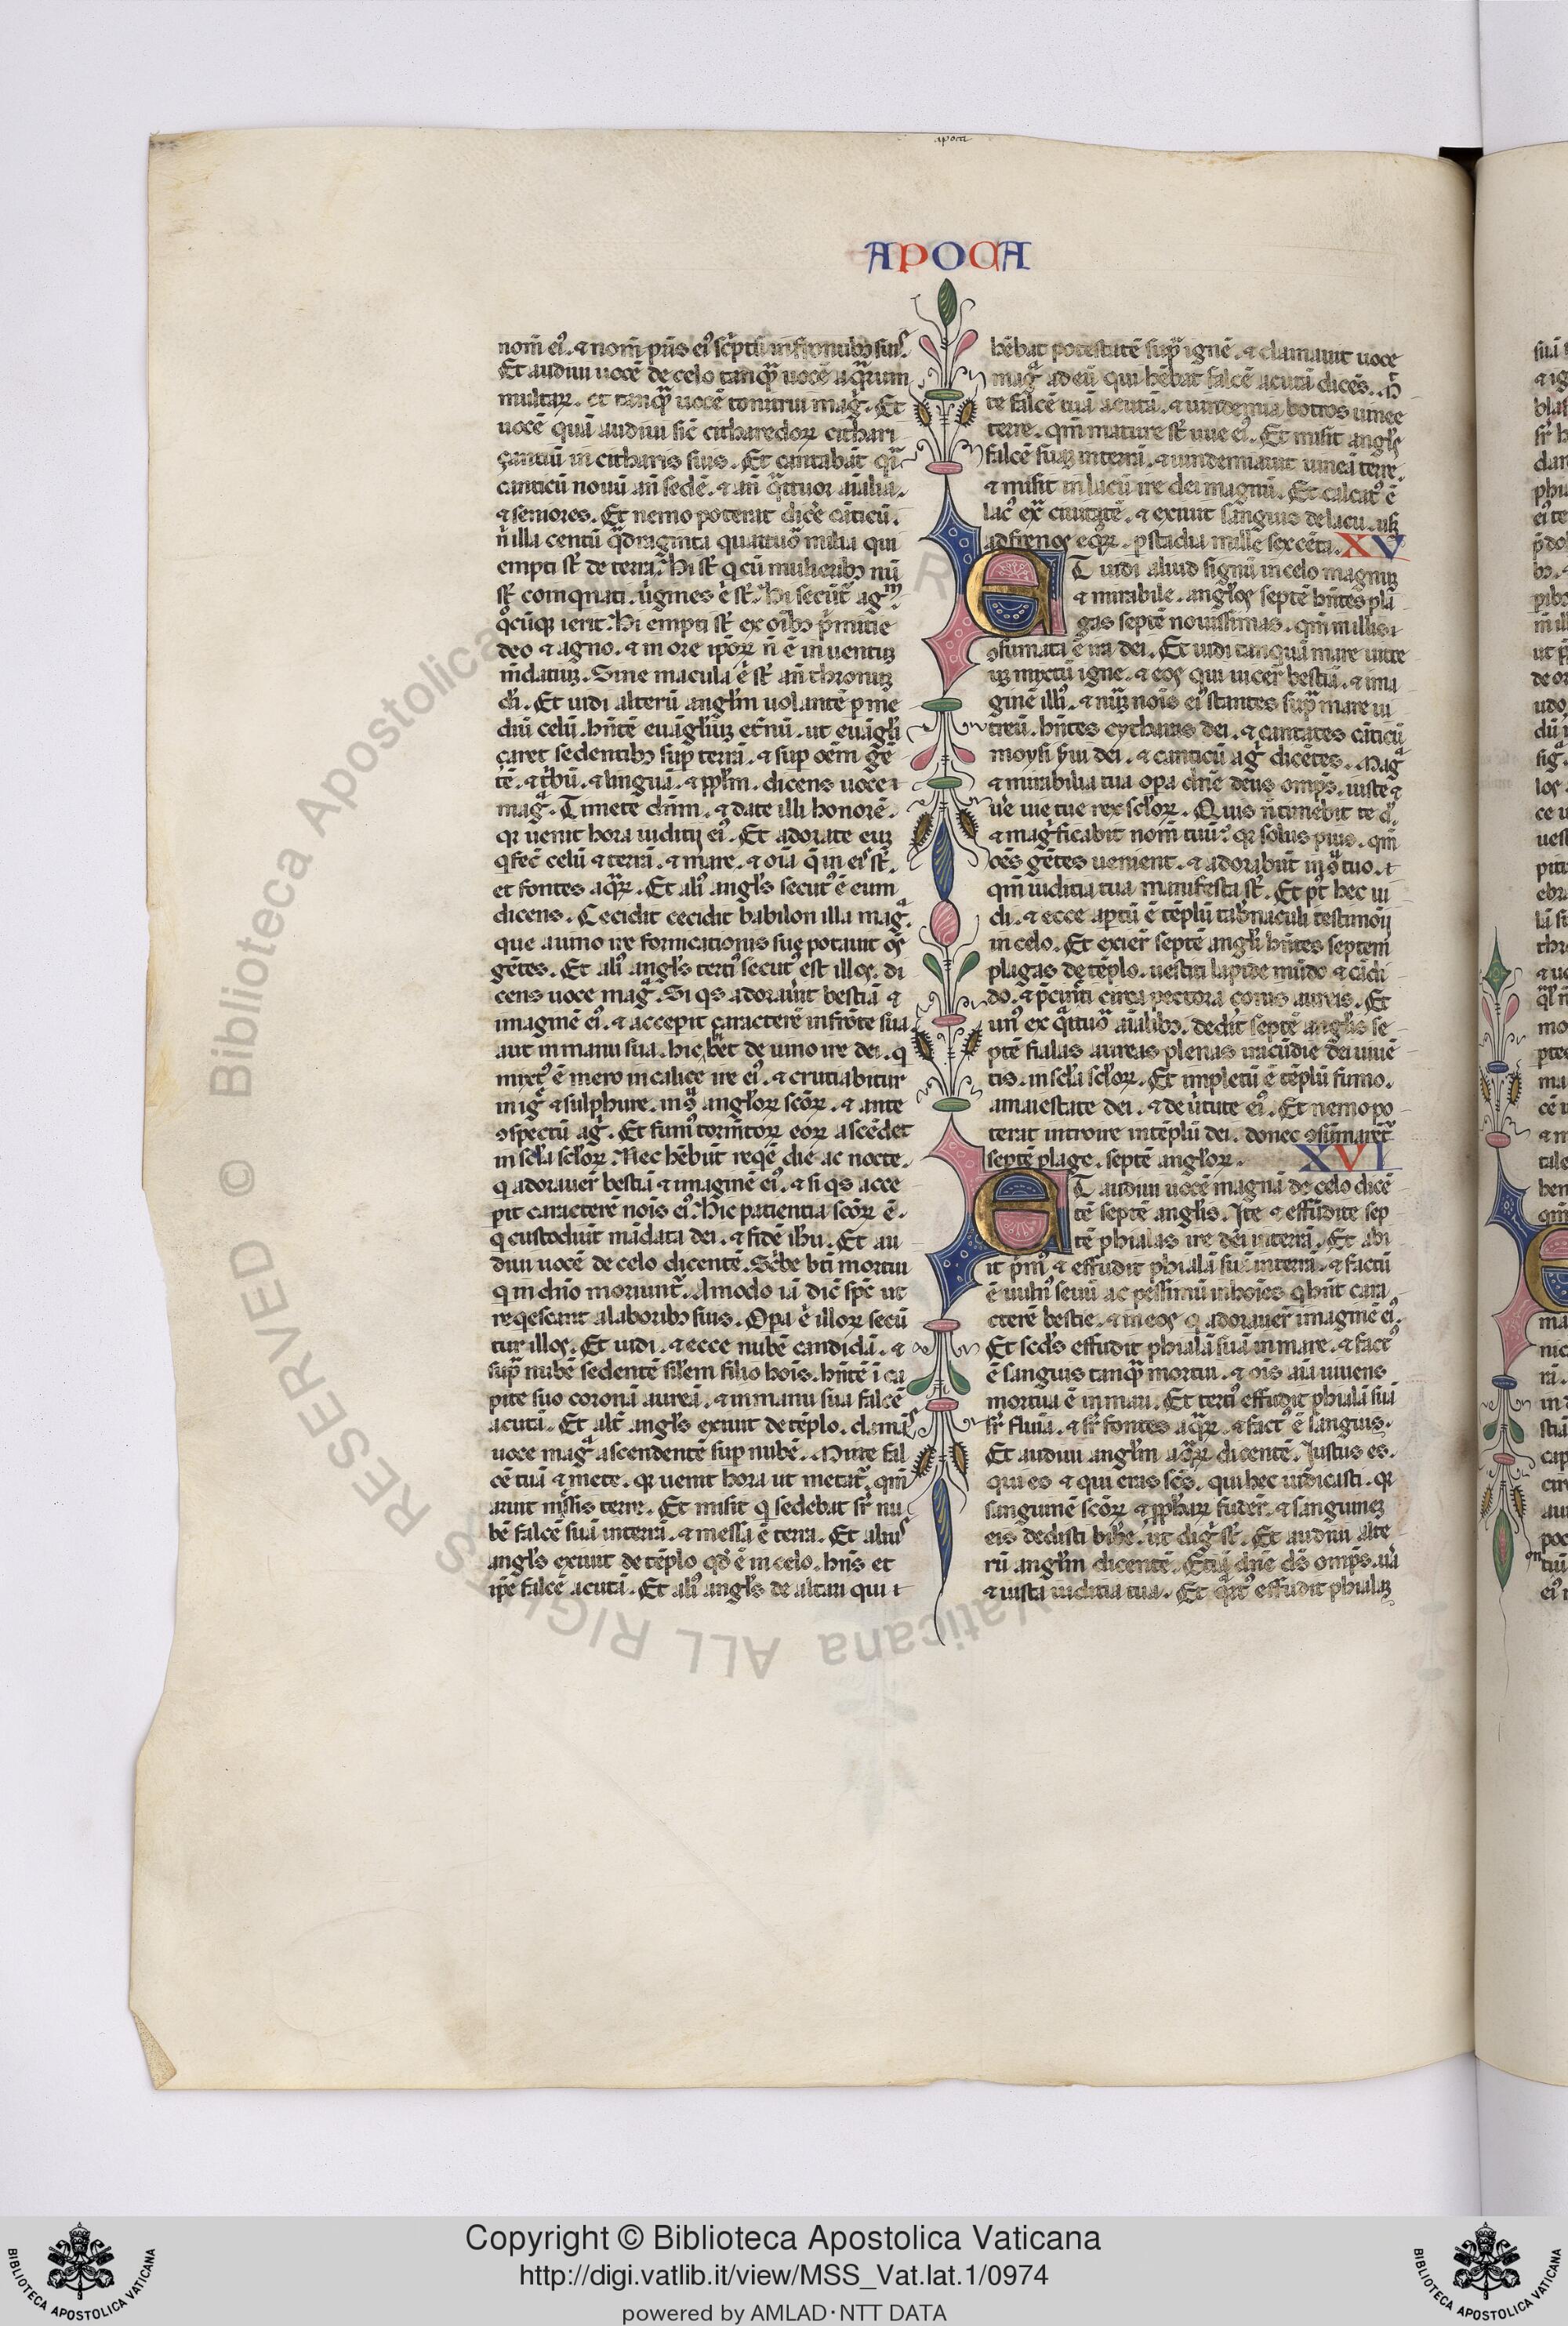 apoca
APOCA
nom̄ eiꝰ. ⁊ nom̄ pr̄is eiꝰ sc̄ptū in frontibꝫ suis.
Et audiui uocē de celo tanqͣ uocē aqͣrum
multaꝝ. et tanqͣ uocē tonitrui magͥ. Et
uocē quā audiui sic̄ citharedoꝝ cithari
çantiū in citharis suis. Et cantabāt qͣi
canticū nouū an̄ sedē. ⁊ an̄ qͣttuor aīalia.
⁊ seniores. Et nemo poterat dicͤe cāticū.
nͥ illa centū qͣdraginta quattuoꝛ milia qui
empti st̄ de terra. Hi st̄ q cū mulieribꝫ nō
st̄ coinqnati. uͥgines ē̓ st̄. Hi secūt̄ agᵐ
qͦcūqꝫ ierit. Hi empti st̄ ex oībꝫ pͥmitie
deo ⁊ agno. ⁊ in ore ip̄oꝝ n̄ ē inuentuꝫ
m̄datiuꝫ. Sine macula ē̓ st̄ an̄ thronuꝫ
dī. Et uidi alterū angl̄m uolantē ꝑ me
diū celū. hn̄tē euāgl̄iuꝫ et̄nū. ut euāgli
çaret sedentibꝫ suꝑ terrā. ⁊ suꝑ oēm gē
tē. ⁊ tͥbū. ⁊ linguā. ⁊ ppl̄m. dicens uoce
magͣ. Timete dn̄m. ⁊ date illi honorē.
qꝛ uenit hora iudicij eiꝰ. Et adorate euꝫ
q fec̄ celū ⁊ terrā. ⁊ mare. ⁊ oīa q̄ in eis st̄.
et fontes aqͣꝝ. Et aliꝰ angl̄s secutꝰ ē eum
dicens. Cecidit cecidit babilon illa magͣ.
que a uino ire fornicationis sue potauit oēs
gētes. Et aliꝰ angl̄s tertiꝰ secutꝰ est illos. di
cens uoce magͣ. Si qs adorauͥit bestiā ⁊
imaginē eiꝰ. ⁊ accepit caracterē in frōte sua
aut in manu sua. hic bͥbet de uino ire dei. q
mixtꝰ ē mero in calice ire eiꝰ. ⁊ cruciabitur
in igͤ ⁊ sulphure. in 9ͣ angl̄oꝝ sc̄oꝝ. ⁊ ante
9spectū agͥ. Et fumꝰ torm̄toꝝ eoꝝ ascēdet
in scl̄a scl̄oꝝ. Nec hēbūt reqē die ac nocte.
q adorauer̄ bestiā ⁊ imaginē eiꝰ. ⁊ si qs acce
pit caracterē nōis eiꝰ. Hic patientia sc̄oꝝ ē.
q custodiūt mādata dei. ⁊ fidē ih̄u. Et au
diui uocē de celo dicentē. Scͥbe bt̄i mortui
q in dn̄o moriunt̄. Amodo iā dic̄ sp̄c ut
reqescant a laboribꝫ suis. Opa ē̓ illoꝝ secū
tur illos. Et uidi. ⁊ ecce nubē candidā. ⁊
supͣ nubē sedentē sil̄em filio hoīs. hn̄tē ī ca
pite suo coronā aureā. ⁊ in manu sua falcē
acutā. Et alt̄ angl̄s exiuit de tēplo. clamās
uoce magͣ ad sedentē suꝑ nubē. Mitte fal
cē tuā ⁊ mete. qꝛ uenit hora ut metat̄. qm̄
aruit messis terre. Et misit q sedebat sꝛ̄ nu
bē falcē suā in terrā. ⁊ messa ē terra. Et alius
angl̄s exiuit de tēplo qd̄ ē in celo. hn̄s et
ip̄e falcē acutā. Et aliꝰ angl̄s de altari qui
hēbat potestatē supͣ ignē. ⁊ clamauit uoce
magͣ ad eū qui hēbat falcē acutā dicēs. Mi
te falcē tuā acutā. ⁊ uindemia botros uinee
terre. qm̄ mature st̄ uue eiꝰ. Et misit angl̄s
falcē suaꝫ in terrā. ⁊ uindemiauit uineā terre.
⁊ misit in lacū ire dei magnū. Et calcatꝰ ē
lacꝰ exͣ ciuitatē. ⁊ exiuit sanguis de lacu. usqꝫ
ad frenos eqͦꝝ. ꝑ stadia mille sexcēta. XV
ET uidi aliud signū in celo magnuꝫ
⁊ mirabile. angl̄os septē hn̄tes pla
gas septē nouissimas. qm̄ in illis
9sumata ē ira dei. Et uidi tanquā mare uitre
uꝫ mixtū igne. ⁊ eos qui uicer̄ bestiā. ⁊ ima
ginē illiꝰ. ⁊ nūꝫ nōis eiꝰ stantes supͣ mare ui
treū. hn̄tes cytharas dei. ⁊ cantātes cāticū
moysi sͥui dei. ⁊ canticū agͥ dicētes. Magͣ
⁊ mirabilia tua opa dn̄e deus omp̄s. iuste ⁊
ue̓ uie tue rex scl̄oꝝ. Quis n̄ timebit te dn̄e
⁊ magͥficabit nom̄ tuū. qꝛ solus pius. qm̄
oēs gētes uenient. ⁊ adorabūt in 9ͣ tuo.
qm̄ iudicia tua manifesta st̄. Et pꝰ hec ui
di. ⁊ ecce aptū ē tēplū tab̄naculi testimonij
in celo. Et exier̄ septē angl̄i hn̄tes septem
plagas de tēplo. uestiti lapide mūdo ⁊ cādi
do. ⁊ p̄cincti circa pectora zonis aureis. Et
unꝰ ex qͣttuoꝛ aīalibꝫ. dedit septē angl̄is se
ptē fialas aureas plenas iracūdie dei uiuē
tis. in scl̄a scl̄oꝝ. Et impletū ē tēplū fumo.
a maiestate dei. ⁊ de uͥtute eiꝰ. Et nemo po
terat introire in tēplū dei. donec 9sūmarēt̄
septē plage. septē angl̄oꝝ. XVI
ET audiui uocē magnā de celo dicē
tē septē angl̄is. Ite ⁊ effūdite sep
tē phialas ire dei in terrā. Et abi
it pͥmꝰ ⁊ effudit phialā suā in terrā. ⁊ factū
ē uulnꝰ seuū ac pessimū in hoīes q hn̄t cara
cterē bestie. ⁊ in eos q adorauer̄ imaginē eiꝰ.
Et sc̄ds effudit phialā suā in mare. ⁊ factꝰ
ē sanguis tanqͣ mortui. ⁊ oīs aīa uiuens
mortua ē in mari. Et tertiꝰ effudit phialā suā
sꝛ̄ fluīa. ⁊ sꝛ̄ fontes aqͣꝝ. ⁊ factꝰ ē sanguis.
Et audiui angl̄m aqͣꝝ dicentē. Iustus es.
qui es ⁊ qui eras sc̄s. qui hec iudicasti. qꝛ
sanguinē sc̄oꝝ ⁊ ppħaꝝ fuder̄. ⁊ sanguinez
eis dedisti bibͤe. ut digͥ st̄. Et audiui alte
rū angl̄m dicentē. Etiā dn̄e ds̄ omp̄s. ua̓
⁊ iusta iudicia tua. Et qͣrtꝰ effudit phialaꝫ
Copyright © Biblioteca Apostolica Vaticana
http://digi.vatlib.it/view/MSS_Vat.lat.1/0974
powered by AMLAD·NTT DATA
BIBLIOTECA APOSTOLICA VATICANA
BIBLIOTECA APOSTOLICA VATICANA
© Biblioteca Apostolica Vaticana ALL RIGHTS RESERVED